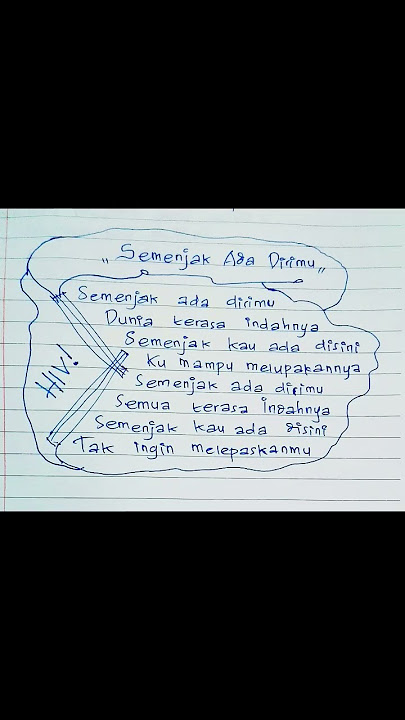 „ Semenjak Ada Dirimu „
Semenjak ada dirimu
Dunia terasa indahnya
Semenjak kau ada disini
Ku mampu melupakannya
Semenjak ada dirimu
Semua terasa Indahnya
Semenjak kau ada disini
Tak ingin melepaskanmu
HIV!